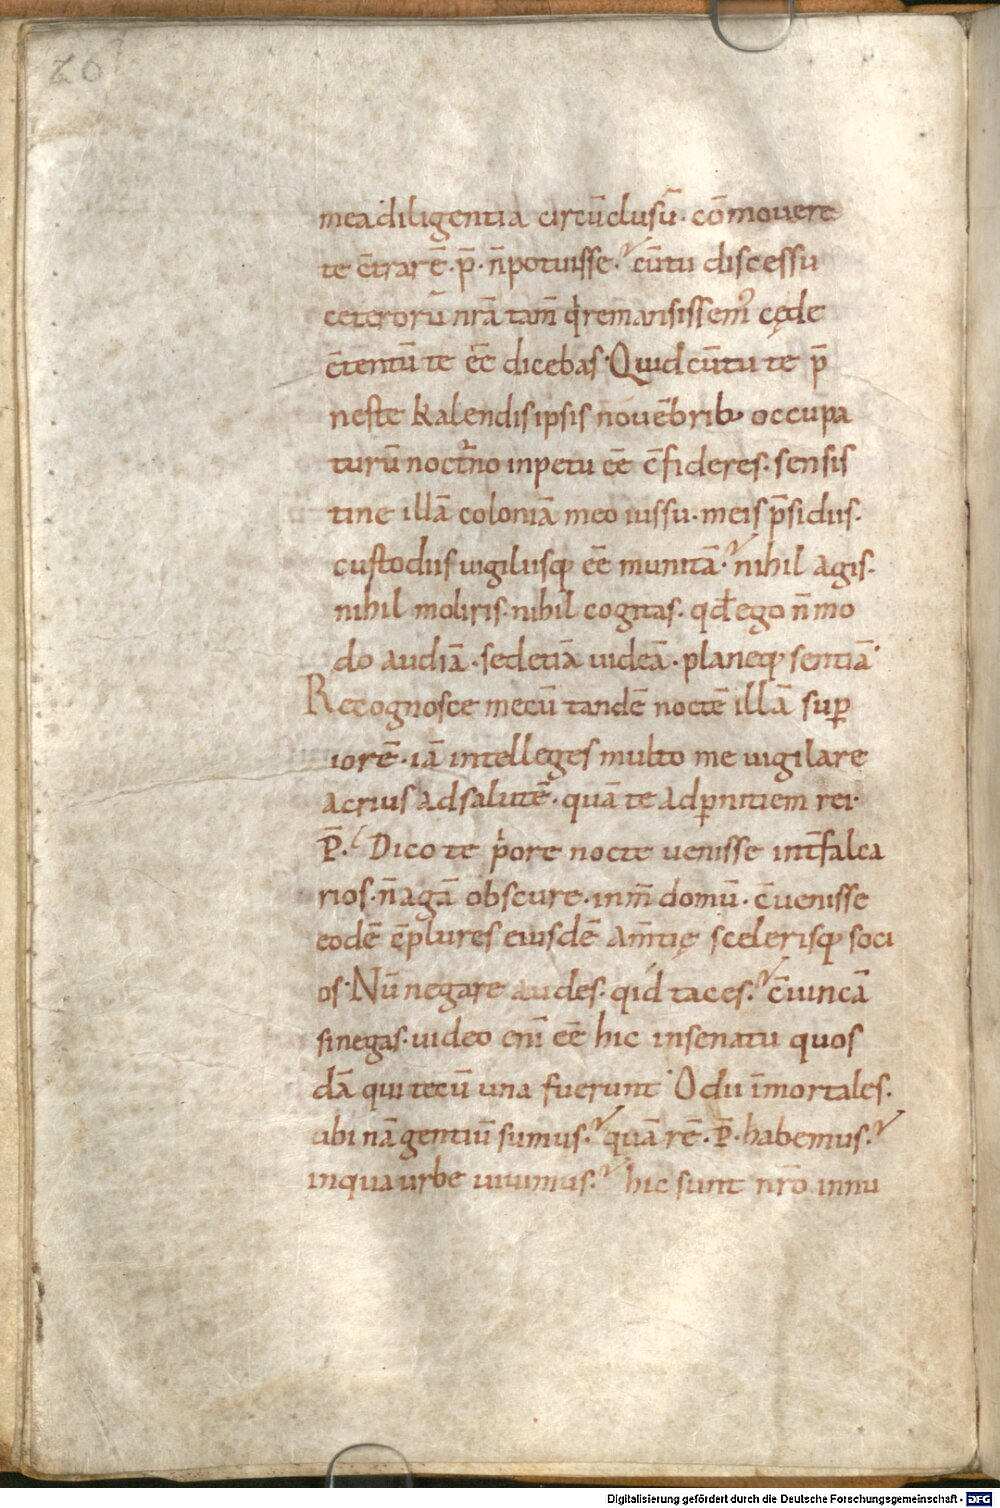 20
mea diligentia circūclusū· cōmouere
te c̄trarē·p̄·n̄potuisse· cūtu discessu
ceterorū nr̄a tam̄ q̇remansissem᷒ cęde
c̄tentū te ēē dicebas· Quid cūtu te p̄
neste kalendis ipsis nouēbrib; occupa
turū noct̄no inpetu ēē c̄fideres· sensis
tine illā coloniā meo iussu· meis p̄sidiis·
custodiis uigiliisq; ēē munitā· nihil agis·
nihil moliris· nihil cogitas· qđ ego n̄ mo
do audiā· sed etiā uideā· planeq; sentiā·
Recognosce mecū tandē noctē illā suꝑ
iorē· iā intelleges multo me uigilare
acrius ad salutē· quā te ad ꝑnitiem rei·
P̄· Dico te p̍ore nocte uenisse int̄ falca
rios· n̄ agā obscure· in m̄ domū· c̄uenisse
eodē c̄plures eiusdē am̄tię scelerisq; soci
os· Nū negare audes· qid taces· c̄uincā
si negas· uideo enī ēē hic in senatu quos
dā qui tecū una fuerunt· O dii īmortales·
ubi nā gentiū sumus· quā rē·P̄·habemus·
in qua urbe uiuimus· hic sunt nr̄o innu
Digitalisierung gefördert durch die Deutsche Forschungsgemeinschaft - DFG